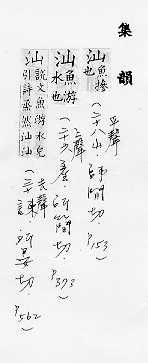 集韻
汕 魚 也
平聲
(二十八山.師閒切.P153)
汕 魚游水也
上聲
(二十六產.所簡切.P373)
汕 說文魚游水皃引詩烝然汕汕
去聲
(三十諫.所晏切.P562)